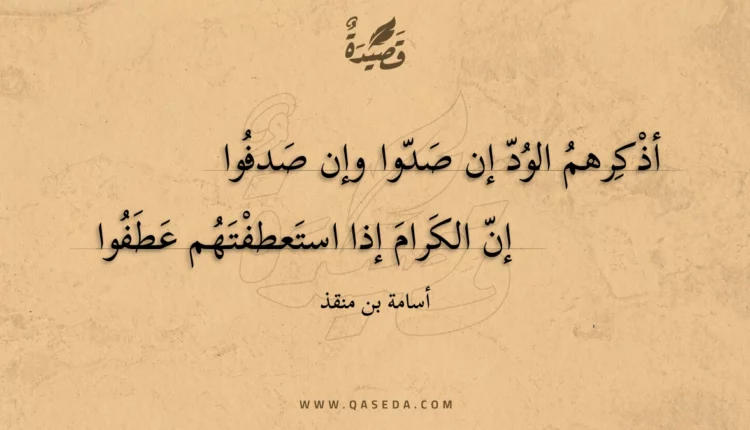 قَصِيْدَةٌ
أذْكِرهمُ الوُدّ إن صَدّوا وإن صَدفُوا
إنّ الكَرامَ إذا استَعطفْتَهُم عَطَفُوا
أسامة بن منقذ
WWW.QASEDA.COM